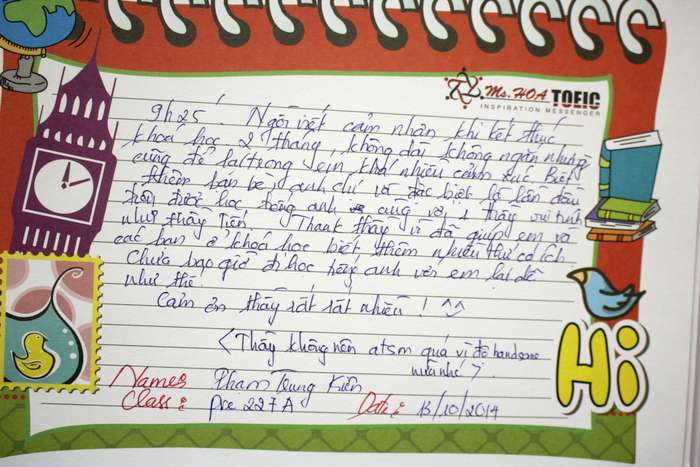 Ms. HOA TOEIC
INSPIRATION MESSENGER
9h25' Ngồi viết cảm nhận khi kết thúc
khoá học 2 tháng, không dài không ngắn nhưng
cũng để lại trong em khá nhiều cảm xúc. Biết
thêm bạn bè, anh chị và đặc biệt là lần đầu
tiên được học tiếng anh cùng với 1 thầy vui tính
như thầy Tiến. Thank thầy vì đã giúp em và
các bạn ở khoá học biết thêm nhiều thứ có ích
Chưa bao giờ đi học tiếng anh với em lại dễ
như thế.
Cảm ơn thầy rất rất nhiều! ^^
<Thầy không nên atsm quá vì độ handsome
nữa nhé>.
Names Phạm Trung Kiên
Class: Pre 227A Date: 13/10/2014
Hi